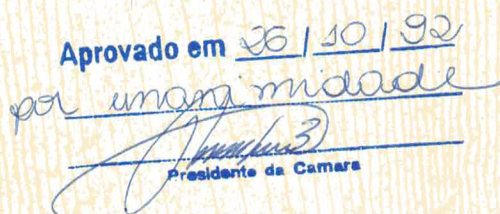 Aprovado em 26/10/92
por unanimidade
Presidente da Camara